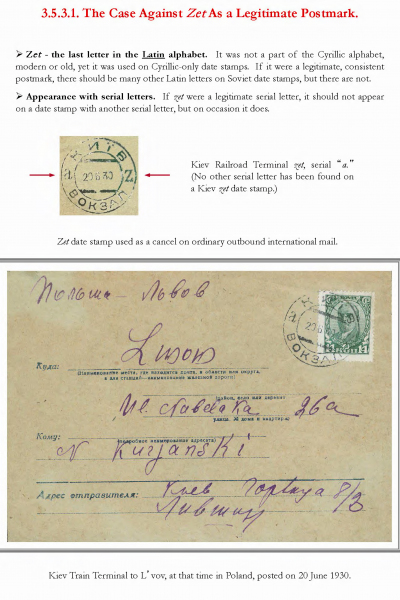 3.5.3.1. The Case Against Zet As a Legitimate Postmark.
➢ Zet - the last letter in the Latin alphabet. It was not a part of the Cyrillic alphabet,
modern or old, yet it was used on Cyrillic-only date stamps. If it were a legitimate, consistent
postmark, there should be many other Latin letters on Soviet date stamps, but there are not.
➢ Appearance with serial letters. If zet were a legitimate serial letter, it should not appear
on a date stamp with another serial letter, but on occasion it does.
20 6 30
Z
ВОКЗАЛ
Kiev Railroad Terminal zet, serial "a."
(No other serial letter has been found on
a Kiev zet date stamp.)
Zet date stamp used as a cancel on ordinary outbound international mail.
Польша - Львов
ВОКЗАЛ
Куда: Lwow
(Наименование места, где находится почта, и области или округа,
а для станций—наименование железной дороги)
26а
Кому:
(подробное наименование адресата)
N Kurjanski
Адрес отправителя: Киев
Kiev Train Terminal to L'vov, at that time in Poland, posted on 20 June 1930.